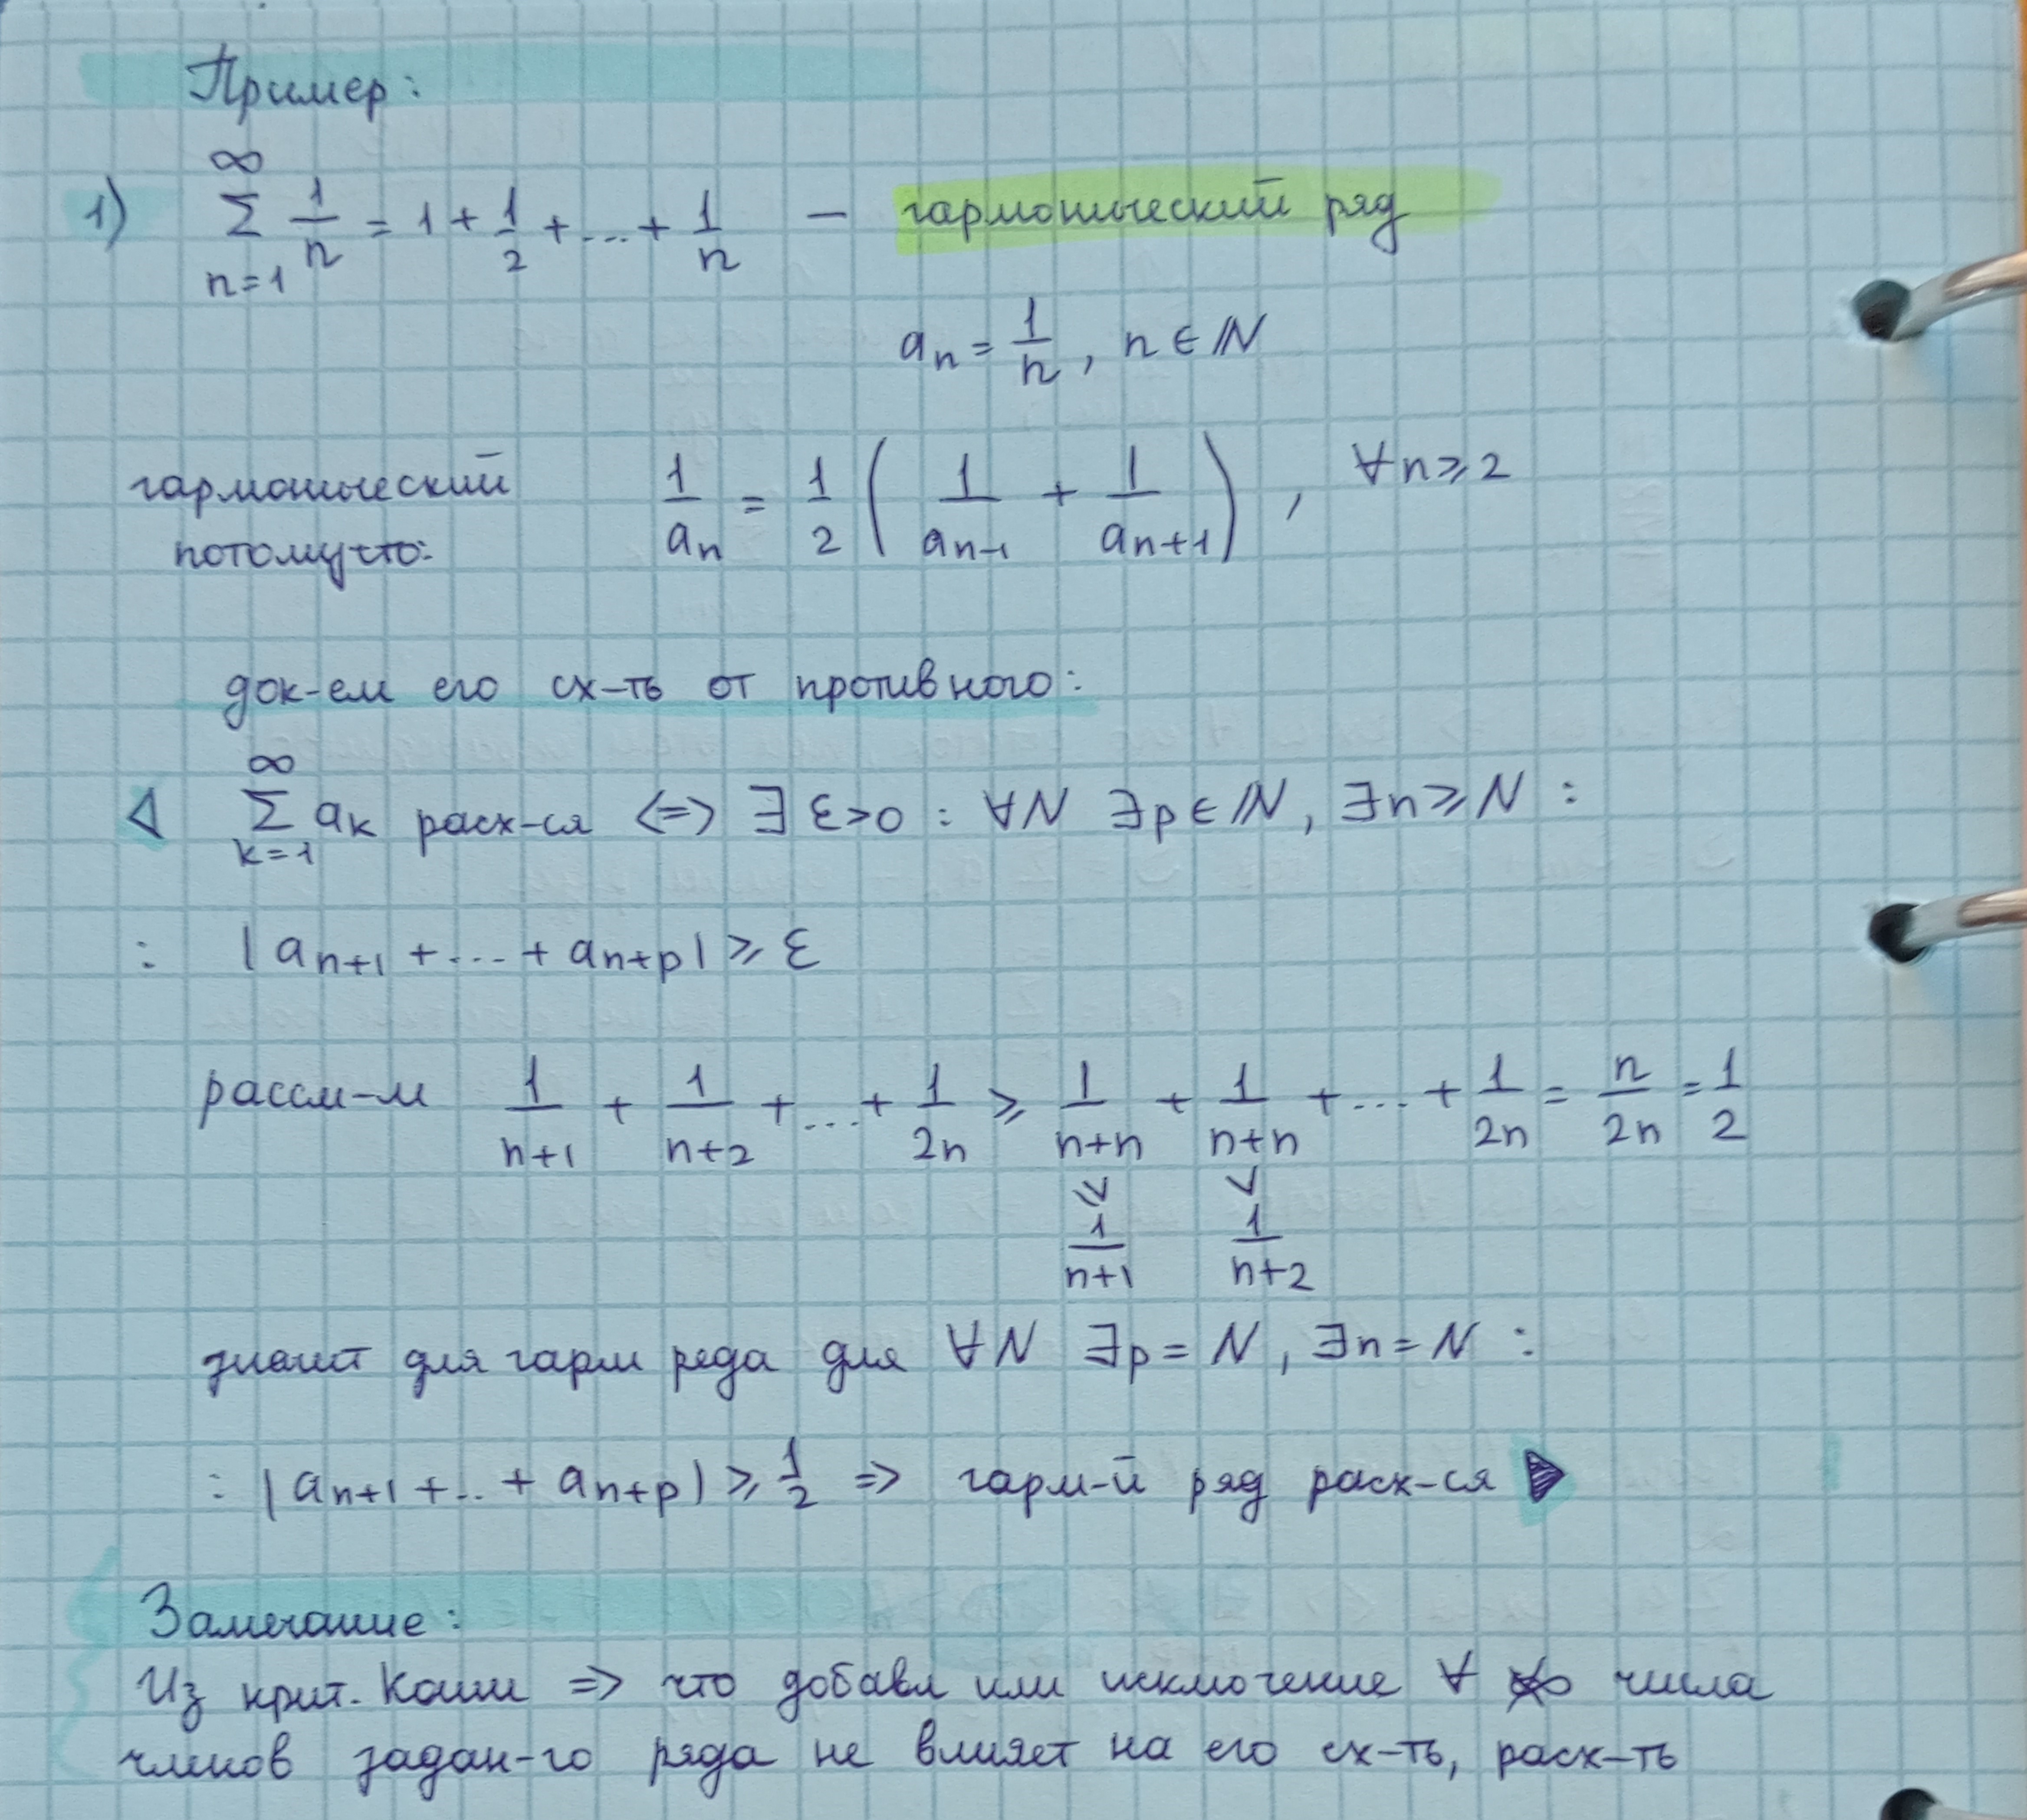 Пример:
1) ∞ Σ n=1 1/n = 1 + 1/2 + ... + 1/n — гармонический ряд
aₙ = 1/n, n ∈ ℕ
гармонический потому что: 1/aₙ = 1/2 (1/aₙ₋₁ + 1/aₙ₊₁), ∀n ≥ 2
док-ем его сх-ть от противного:
◁ ∞ Σ k=1 aₖ расх-ся <=> ∃ ε>0 : ∀N ∃p ∈ ℕ, ∃n ≥ N :
: |aₙ₊₁ + ... + aₙ₊ₚ| ≥ ε
рассм-м 1/(n+1) + 1/(n+2) + ... + 1/2n ≥ 1/(n+n) + 1/(n+n) + ... + 1/2n = n/2n = 1/2
⩔ ∨
1/(n+1) 1/(n+2)
значит для гарм ряда для ∀N ∃p = N, ∃n = N :
: |aₙ₊₁ + .. + aₙ₊ₚ| ≥ 1/2 => гарм-й ряд расх-ся ▶
Замечание:
Из крит. Коши => что добавл или исключение ∀ числа
членов задан-го ряда не влияет на его сх-ть, расх-ть